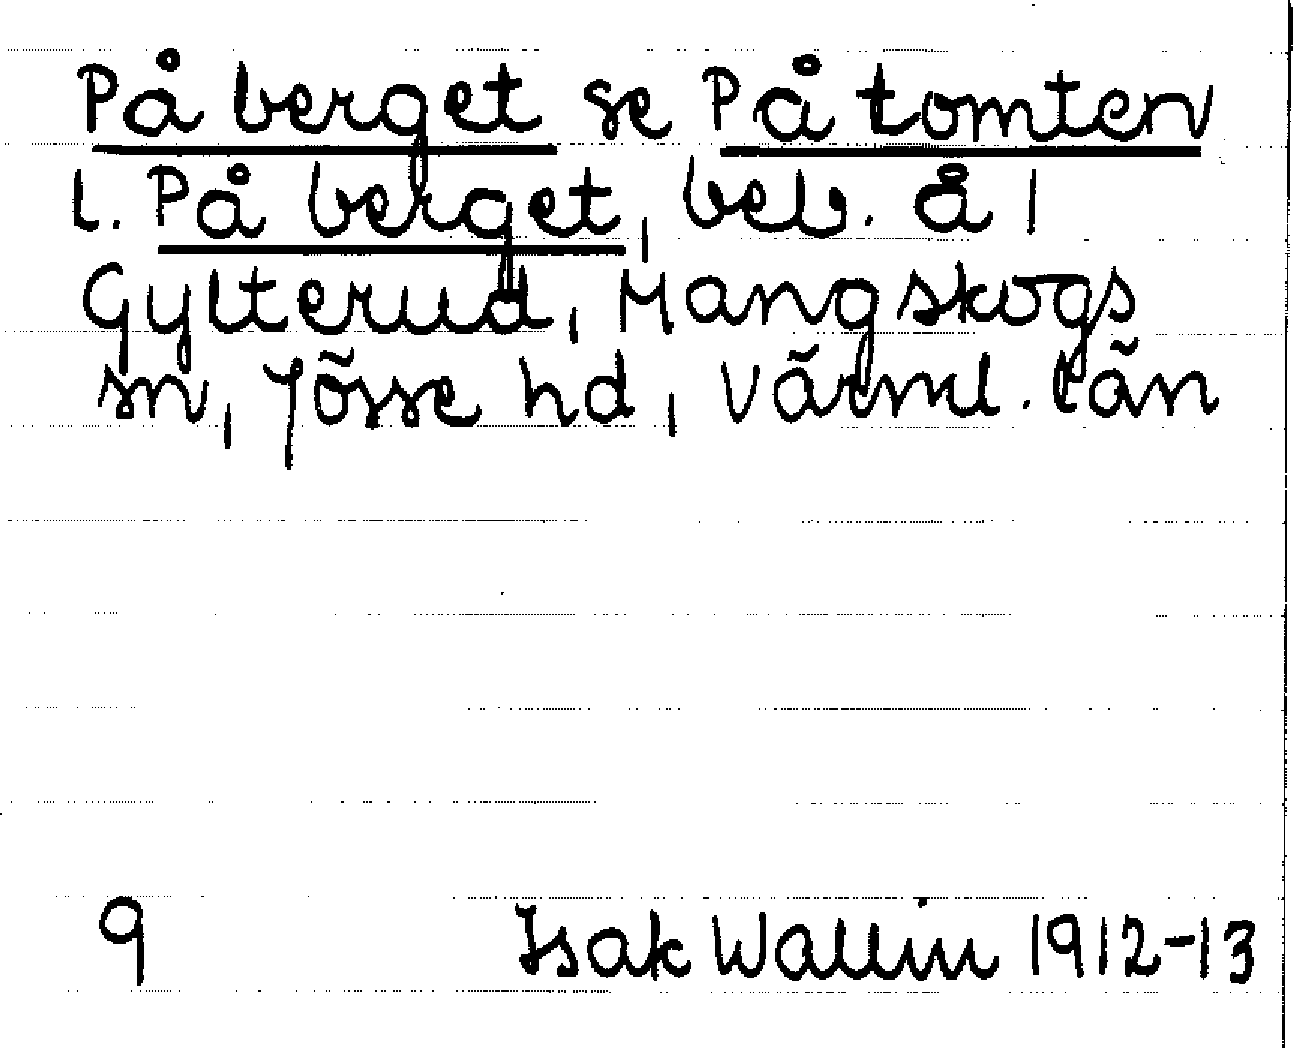 På berget se På tomten
l. På berget, beb. å 1
Gylterud, Mangskogs
sn, Jösse hd, Värml. län
9 Isak Wallin 1912-13